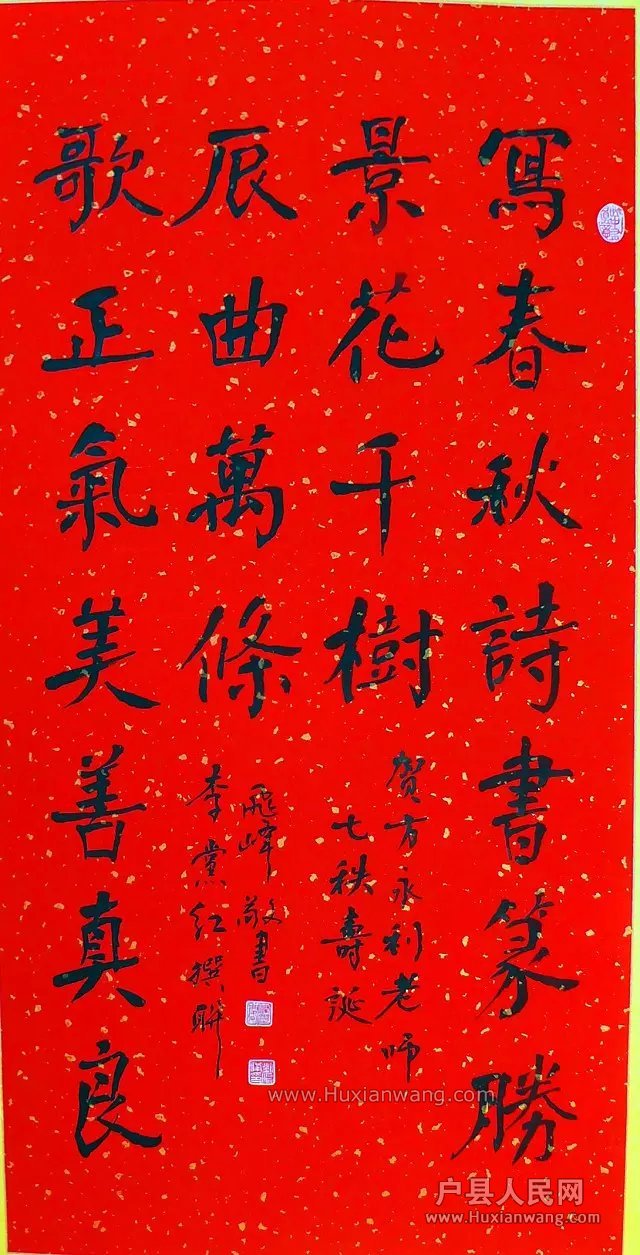 寫春秋詩書篆勝
景花千樹
賀方永利老师
七秩壽誕
辰曲萬條
飛峰敬書
李黨紅撰聯
歌正氣美善真良
www.Huxianwang.com
户县人民网
www.Huxianwang.com